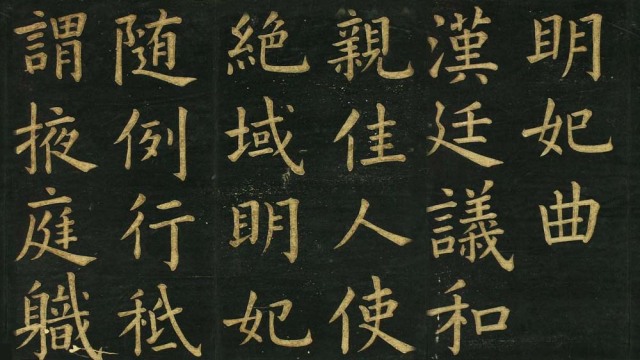 明妃曲
漢廷議和
親佳人使
絶域明妃
随例行秪
謂掖庭職